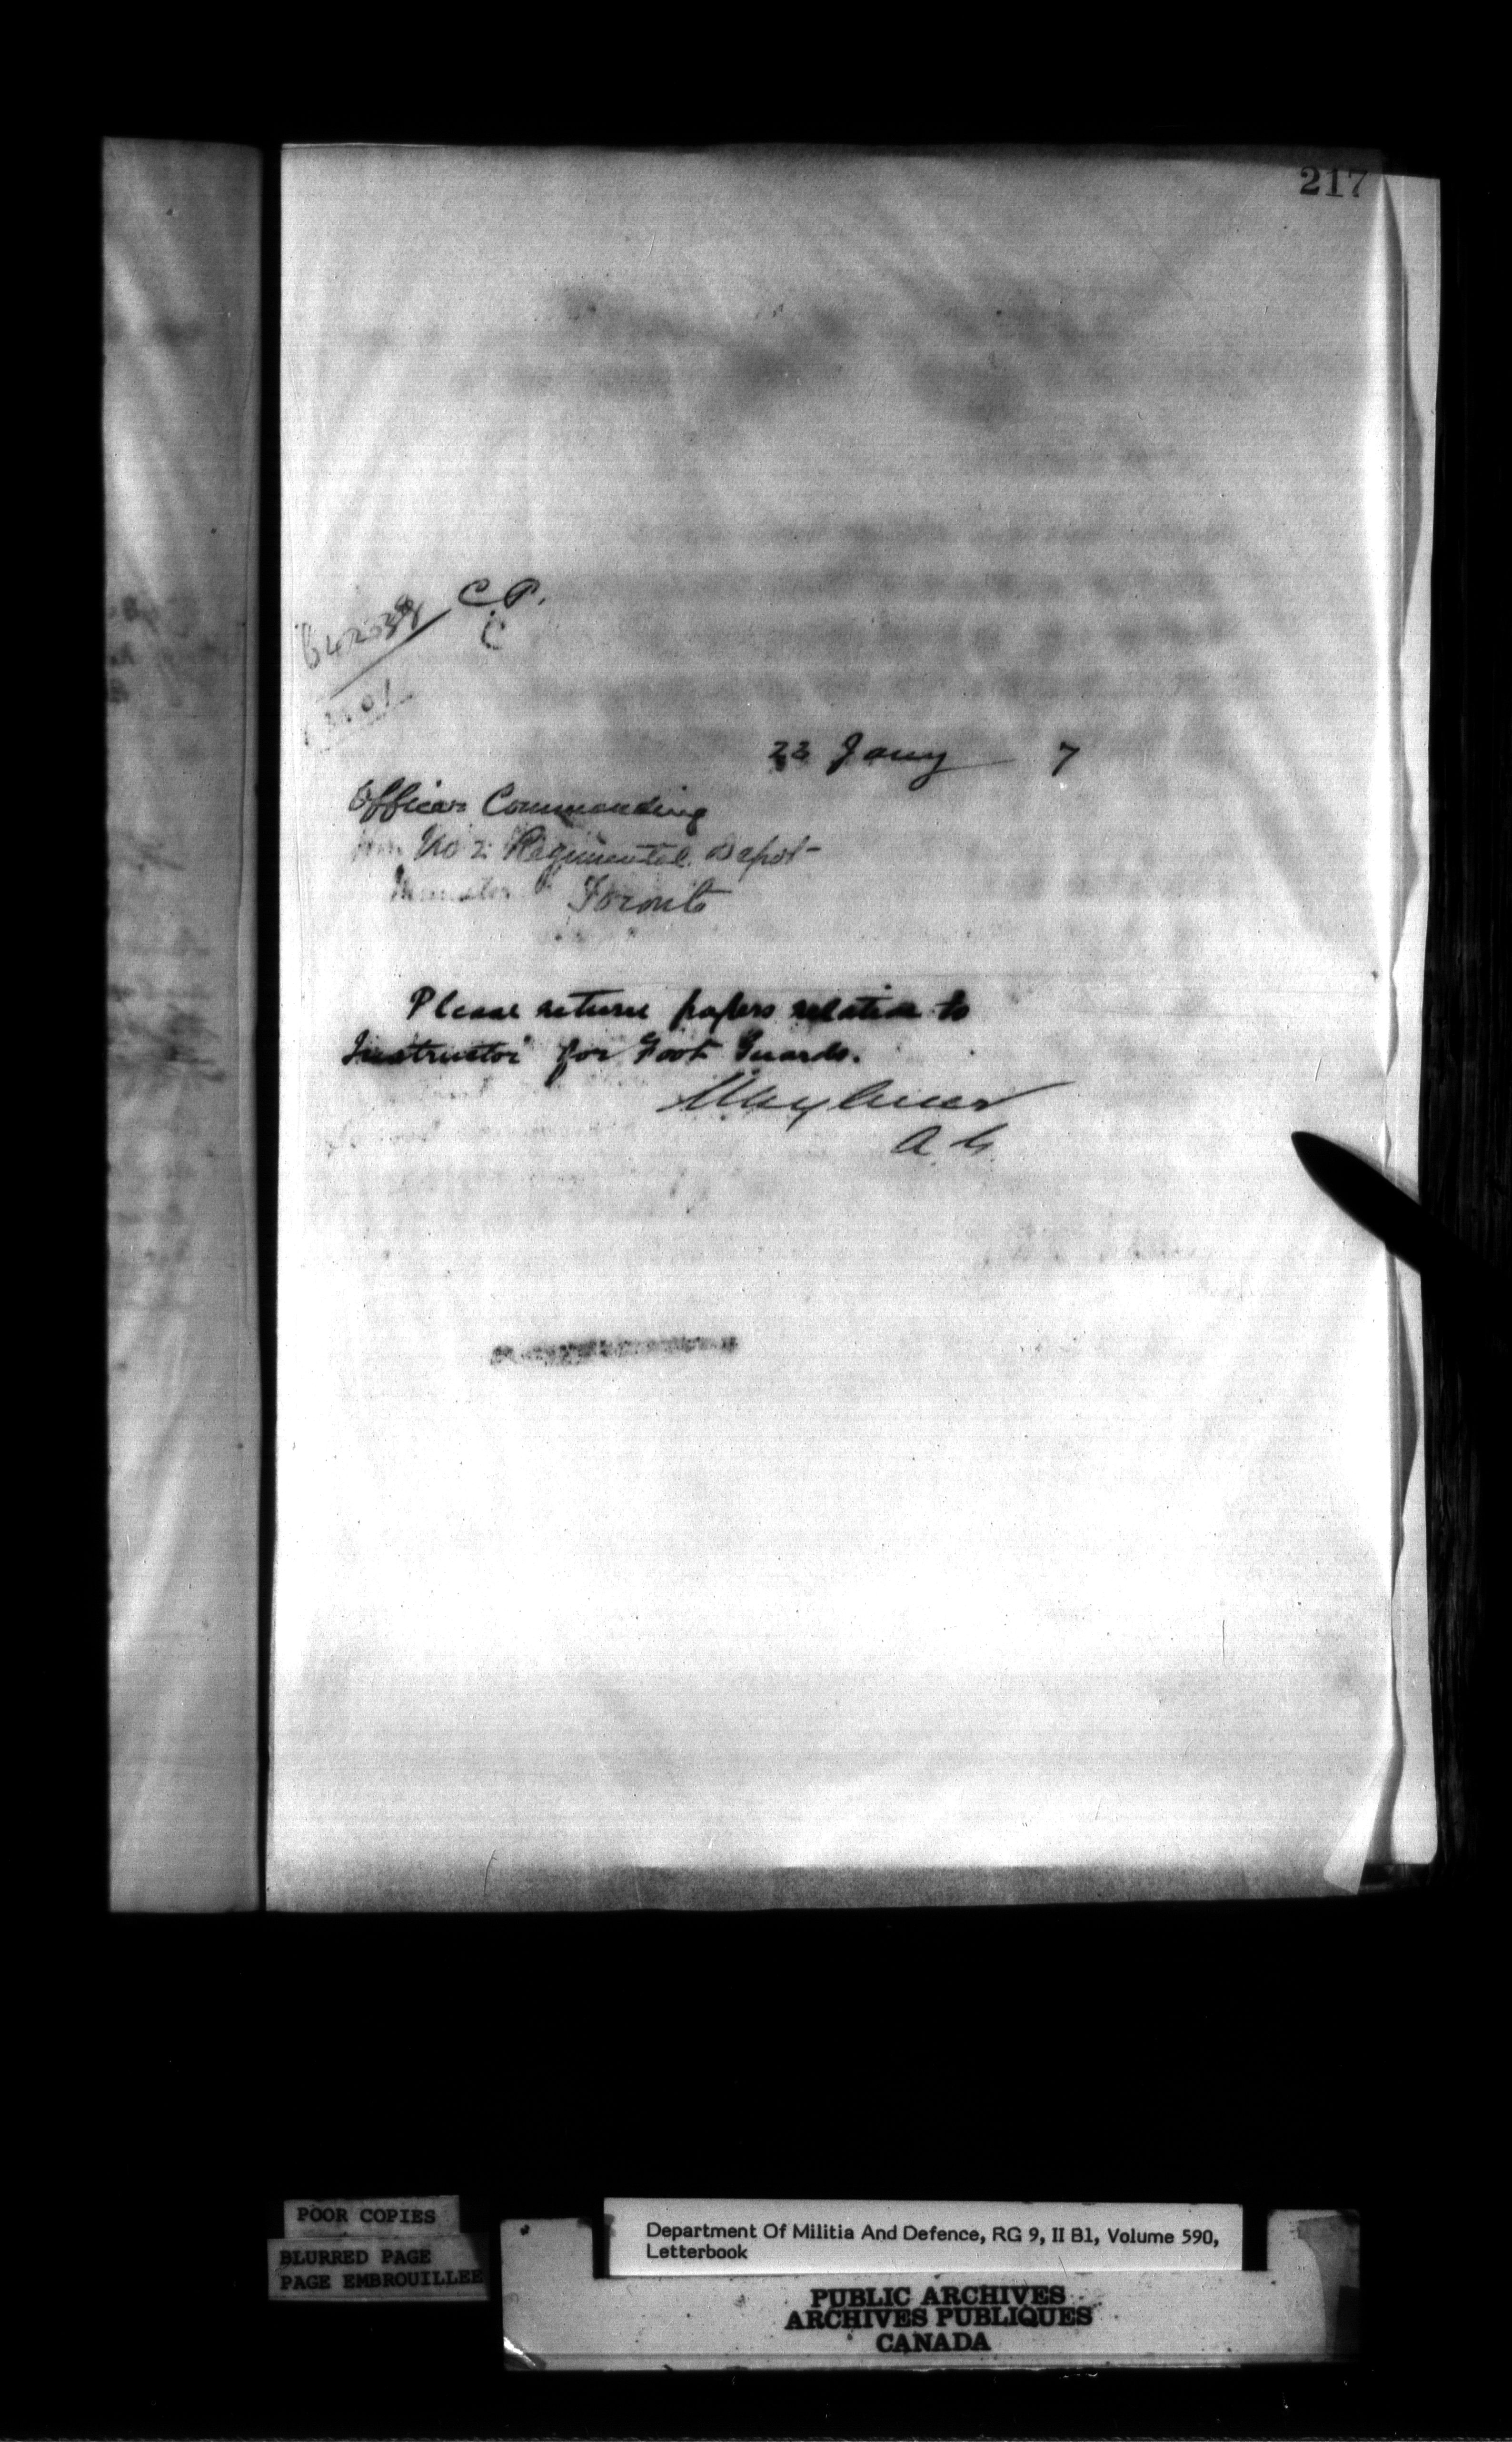 217
C.P.
22 Jany 7
Officer Commanding
No 2 Regimental Depot
Toronto
Please return papers relative to
Instructor for Foot Guards.
A.G.
POOR COPIES
BLURRED PAGE
PAGE EMBROUILLEE
Department Of Militia And Defence, RG 9, II B1, Volume 590,
Letterbook
PUBLIC ARCHIVES
ARCHIVES PUBLIQUES
CANADA